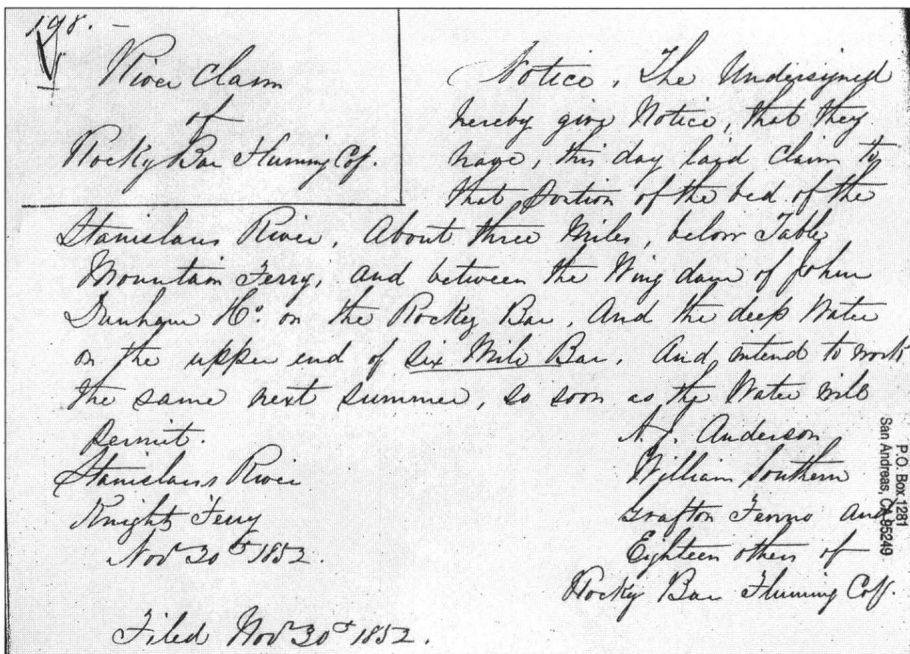 198. -
River Claim
of
Rocky Bar Fluming Coy.
Notice, The Undersigned
hereby give Notice, that they
have, this day laid claim to
that portion of the bed of the
Stanislaus River, About three Miles, below Table
Mountain Ferry, and between the Wing dam of John
Dunham on the Rocky Bar, And the deep Water
on the upper end of Six Mile Bar, And intend to work
the same next summer, so soon as the Water will
permit.
Stanislaus River
Knight Ferry
Nov 30th 1852.
A. J. Anderson
William Southern
Grafton Fenno and
Eighteen others of
Rocky Bar Fluming Coy.
Filed Nov 30th 1852.
P.O. Box 1281
San Andreas, CA 95249